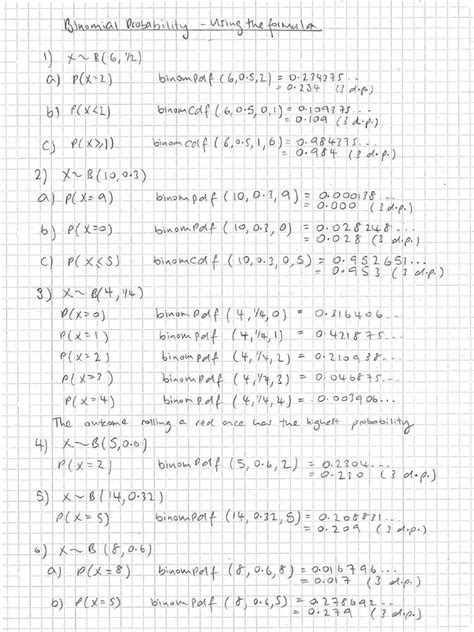 Binomial Probability - Using the formula
1) X~B(6,1/2)
a) P(X=2) binompdf (6,0.5,2) = 0.234375...
= 0.234 (3 d.p.)
b) P(X<2) binomcdf (6,0.5,0,1) = 0.109375...
= 0.109 (3 d.p.)
c) P(X⩾1) binomcdf (6,0.5,1,6) = 0.984375...
= 0.984 (3 d.p.)
2) X~B(10,0.3)
a) P(X=9) binompdf (10,0.3,9) = 0.000138...
= 0.000 (3 d.p.)
b) P(X=0) binompdf (10,0.3,0) = 0.028248...
= 0.028 (3 d.p.)
c) P(X⩽5) binomcdf (10,0.3,0,5) = 0.952651...
= 0.953 (3 d.p.)
3) X~B(4,1/4)
P(X=0) binompdf (4,1/4,0) = 0.316406...
P(X=1) binompdf (4,1/4,1) = 0.421875...
P(X=2) binompdf (4,1/4,2) = 0.210938...
P(X=3) binompdf (4,1/4,3) = 0.046875...
P(X=4) binompdf (4,1/4,4) = 0.003906...
The outcome rolling a red once has the highest probability
4) X~B(5,0.6)
P(X=2) binompdf (5,0.6,2) = 0.2304...
= 0.230 (3 d.p.)
5) X~B(14,0.32)
P(X=5) binompdf (14,0.32,5) = 0.208831...
= 0.209 (3 d.p.)
6) X~B(8,0.6)
a) P(X=8) binompdf (8,0.6,8) = 0.016796...
= 0.017 (3 d.p.)
b) P(X=5) binompdf (8,0.6,5) = 0.278692...
= 0.279 (3 d.p.)